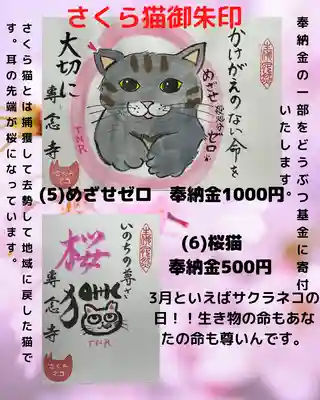 さくら猫御朱印
奉納金の一部をどうぶつ基金に寄付
いたします。
かけがえのない命を
めざせ殺処分ゼロ
大切に
専念寺
TNR
さくら
ネコ
さくら猫とは捕獲して去勢して地域に戻した猫で
す。耳の先端が桜になっています。
(5)めざせゼロ　奉納金1000円
いのちの尊さ
桜
猫
専念寺
TNR
さくら
ネコ
(6)桜猫
奉納金500円
3月といえばサクラネコの
日！！生き物の命もあな
たの命も尊いんです。